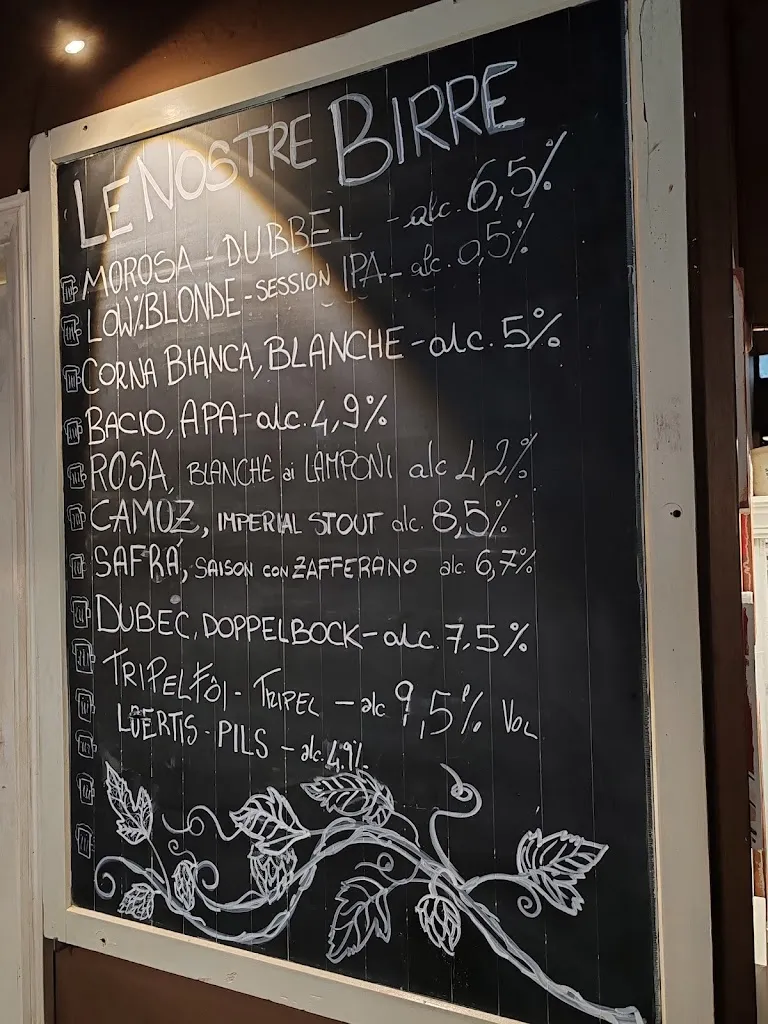 LE NOSTRE BIRRE
MOROSA - DUBBEL - alc. 6,5%
LOW%BLONDE - SESSION IPA - alc. 0,5%
CORNA BIANCA, BLANCHE - alc. 5%
BACIO, APA - alc. 4,9%
ROSA, BLANCHE ai LAMPONI alc 4,2%
CAMOZ, IMPERIAL STOUT alc. 8,5%
SAFRÀ, SAISON con ZAFFERANO alc. 6,7%
DUBEC, DOPPELBOCK - alc. 7.5%
TRIPELFÔI - TRIPEL - alc 9,5% VOL
LÜERTIS - PILS - alc. 4.9%